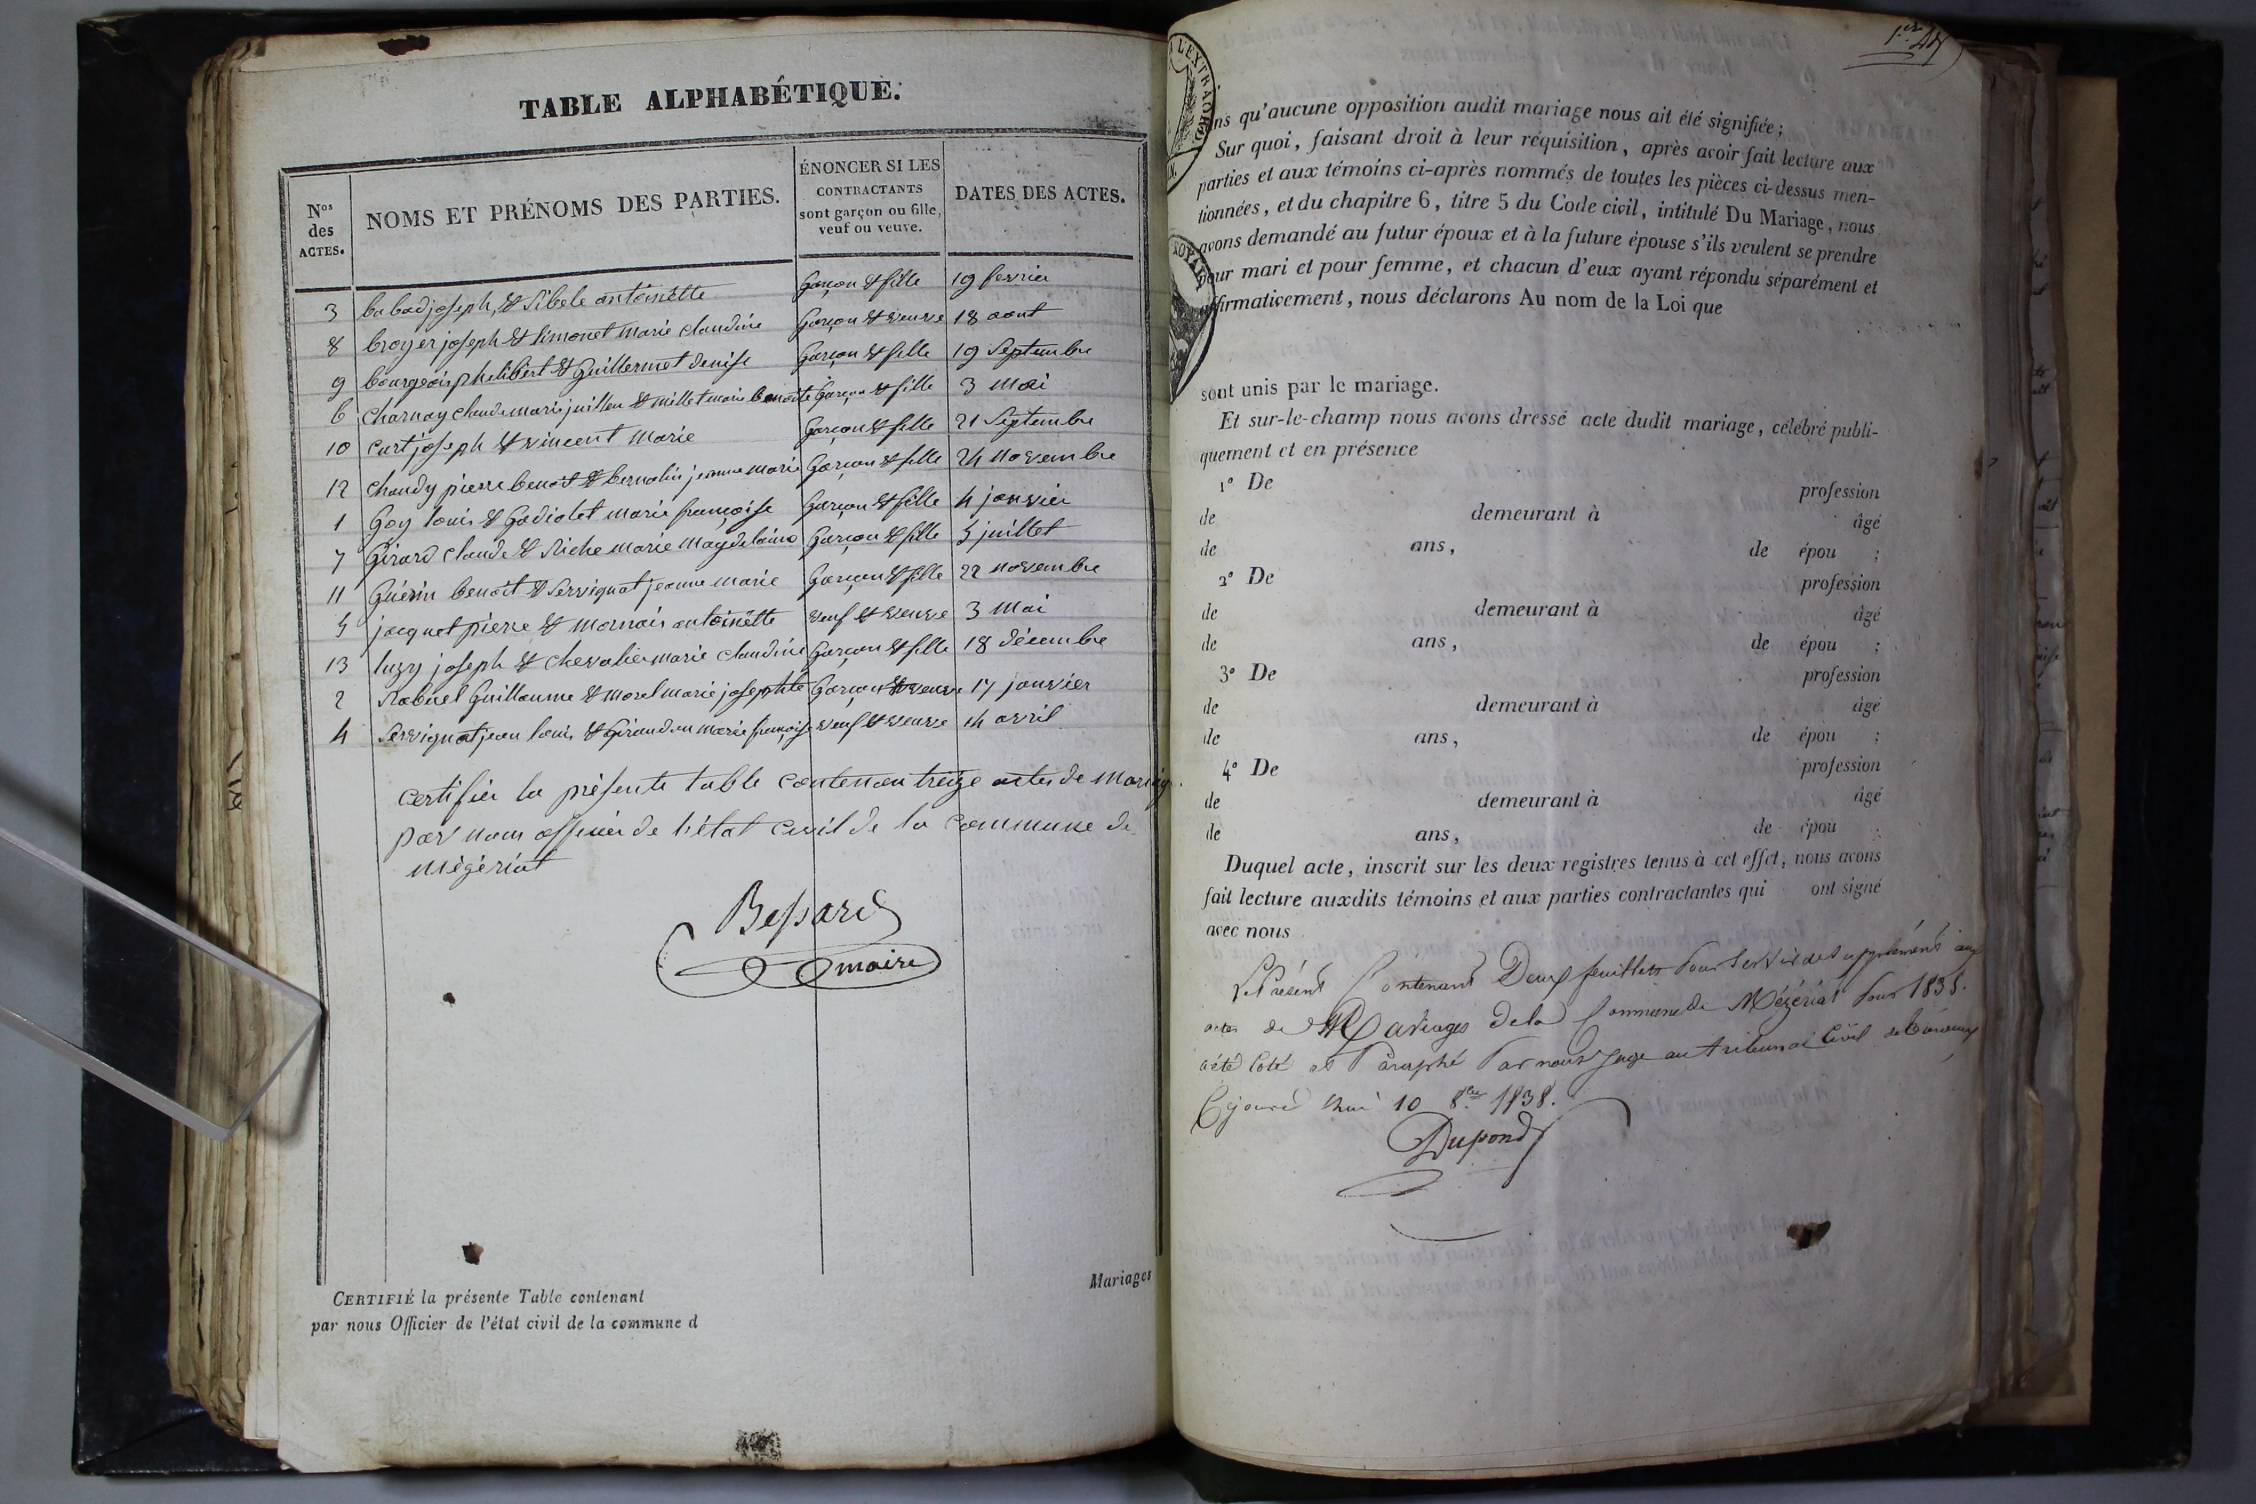 TABLE ALPHABÉTIQUE.
Nos des ACTES.
NOMS ET PRÉNOMS DES PARTIES.
ÉNONCER SI LES
CONTRACTANTS
sont garçon ou fille,
veuf ou veuve.
DATES DES ACTES.
3 babad joseph, & Sibele antoinètte Garçon & fille 19 fevrier
8 broyer joseph & Simonet Marie claudine Garçon & veuve 18 aout
9 bourgeois philibert & Guillermet denise Garçon & fille 19 Septembre
6 charnay claude marie juillen & millet marie benoite Garçon & fille 3 Mai
10 curt joseph & vincent Marie Garçon & fille 21 Septembre
12 chaudy pierre benoit & bernolin jeanne marie Garçon & fille 24 novembre
1 Goy louis & Gadiolet marie françoise Garçon & fille 4 janvier
7 Girard claude & Riche marie Magdelaine Garçon & fille 5 juillet
11 Guérin benoit & Servignat jeanne marie Garçon & fille 22 novembre
5 jacquet pierre & antoinètte veuf & veuve 3 Mai
13 luzy joseph & chevalier marie claudine Garçon & fille 18 décembre
2 Rabuel Guillaume & morel marie josephte Garçon & veuve 17 janvier
4 Servignat jean louis & Giraudon marie françoise veuf & veuve 14 avril
certifier la présente table contenan treize actes de Mariag
par nous officier de l'état civil de la commune de
Mézériat
Bessard
maire
Mariages
CERTIFIÉ la présente Table contenant
par nous Officier de l'état civil de la commune d
1er
L'EXTRAORD.
ROYAL
ns qu'aucune opposition audit mariage nous ait été signifiée;
Sur quoi, faisant droit à leur réquisition, après avoir fait lecture aux
parties et aux témoins ci-après nommés de toutes les pièces ci-dessus men-
tionnées, et du chapitre 6, titre 5 du Code civil, intitulé Du Mariage, nous
avons demandé au futur époux et à la future épouse s'ils veulent se prendre
pour mari et pour femme, et chacun d'eux ayant répondu séparément et
affirmativement, nous déclarons Au nom de la Loi que
sont unis par le mariage.
Et sur-le-champ nous avons dressé acte dudit mariage, célébré publi-
quement et en présence
1° De profession
de demeurant à âgé
de ans, de épou ;
2° De profession
de demeurant à âgé
de ans, de épou ;
3° De profession
de demeurant à âgé
de ans, de épou ;
4° De profession
de demeurant à âgé
de ans, de épou .
Duquel acte, inscrit sur les deux registres tenus à cet effet, nous avons
fait lecture auxdits témoins et aux parties contractantes qui ont signé
avec nous
Le Présent Contenant Deux feuillets Pour Servir de Supplément aux
actes de Mariages De la Commune de Mézériat Pour 1838.
a été Coté et Paraphé Par nous Juge au tribunal Civil de
Cejourd'hui 10 8bre 1838.
Dupond